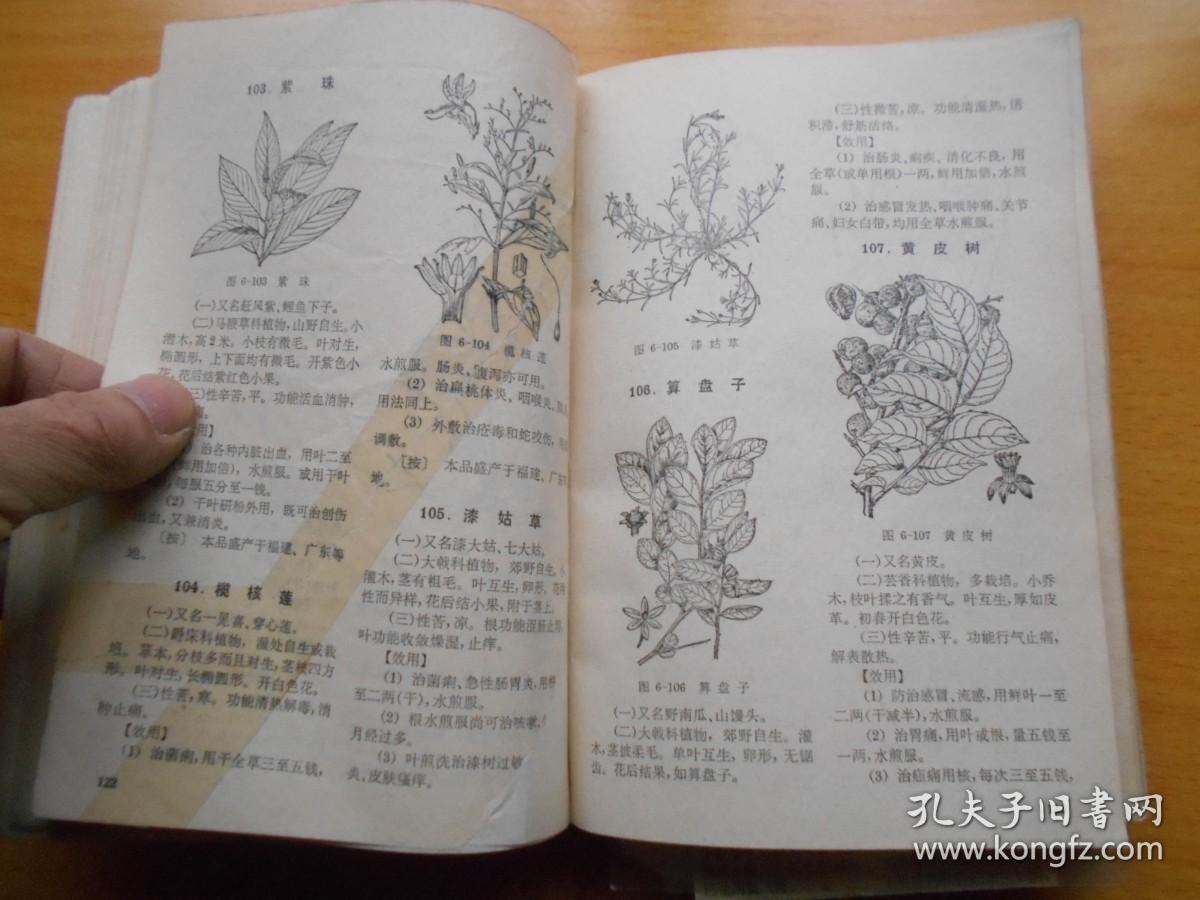 103．紫 珠
图 6-103 紫 珠
(一)又名赶风紫、鲤鱼下子。
(二)马鞭草科植物，山野自生。小
灌木，高2米。小枝有微毛。叶对生，
椭圆形，上下面均有微毛。开紫色小
花，花后结紫红色小果。
(三)性辛苦，平。功能活血消肿，
用】
治各种内脏出血，用叶二至
(鲜用加倍)，水煎服。或用干叶
，每服五分至一钱。
(2) 干叶研粉外用，既可治创伤
出血，又兼消炎。
〔按〕 本品盛产于福建、广东等
地。
104．榄 核 莲
(一)又名一见喜、穿心莲。
(二)爵床科植物，湿处自生或栽
培。草本，分枝多而且对生，茎枝四方
形。叶对生，长椭圆形。开白色花。
(三)性苦，寒。功能清热解毒，消
肿止痛。
【效用】
(1) 治菌痢，用干全草三至五钱，
122
图 6-104 榄 核 莲
水煎服。肠炎、腹泻亦可用。
(2) 治扁桃体炎、咽喉炎、
用法同上。
(3) 外敷治疮毒和蛇咬伤，
调敷。
〔按〕 本品盛产于福建、广东
地。
105．漆 姑 草
(一)又名漆大姑、七大姑。
(二)大戟科植物，郊野自生。小
灌木，茎有粗毛。叶互生，卵形，花两
性而异样，花后结小果，附于茎上。
(三)性苦，凉。根功能涩肠止
叶功能收敛燥湿，止痒。
【效用】
(1) 治菌痢、急性肠胃炎，用根
至二两(干)，水煎服。
(2) 根水煎服尚可治咳嗽，
月经过多。
(3) 叶煎洗治漆树过敏
炎、皮肤瘙痒。
图 6-105 漆 姑 草
106．算 盘 子
图 6-106 算 盘 子
(一)又名野南瓜、山馒头。
(二)大戟科植物，郊野自生。灌
木，茎披柔毛。单叶互生，卵形，无锯
齿。花后结果，如算盘子。
(三)性微苦，凉。功能清湿热，消
积滞，舒筋活络。
【效用】
(1) 治肠炎、痢疾、消化不良，用
全草(或单用根)一两，鲜用加倍，水煎
服。
(2) 治感冒发热、咽喉肿痛、关节
痛、妇女白带，均用全草水煎服。
107．黄 皮 树
图 6-107 黄 皮 树
(一)又名黄皮。
(二)芸香科植物，多栽培。小乔
木，枝叶揉之有香气。叶互生，厚如皮
革。初春开白色花。
(三)性辛苦，平。功能行气止痛，
解表散热。
【效用】
(1) 防治感冒、流感，用鲜叶一至
二两(干减半)，水煎服。
(2) 治胃痛，用叶或根，量五钱至
一两，水煎服。
(3) 治疝痛用核，每次三至五钱，
孔夫子旧书网
www.kongfz.com